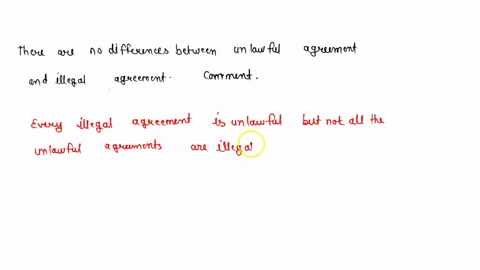 There are no differences between unlawful agreement
and illegal agreement. Comment.
Every illegal agreement is unlawful but not all the
unlawful agreements are illegal